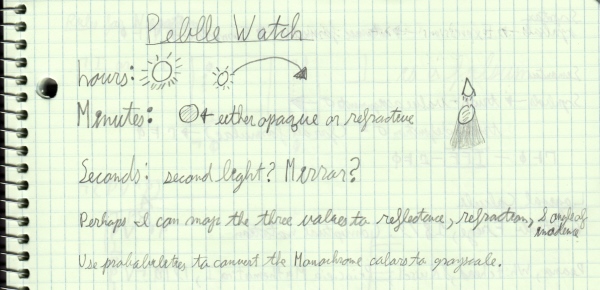 Pebble Watch
hours:
Minutes: either opaque or refractive
Seconds: second light? Mirror?
Perhaps I can map the three values to reflectence, refraction, & angle of incidence
Use probabilities to convert the Monochrome colors to grayscale.